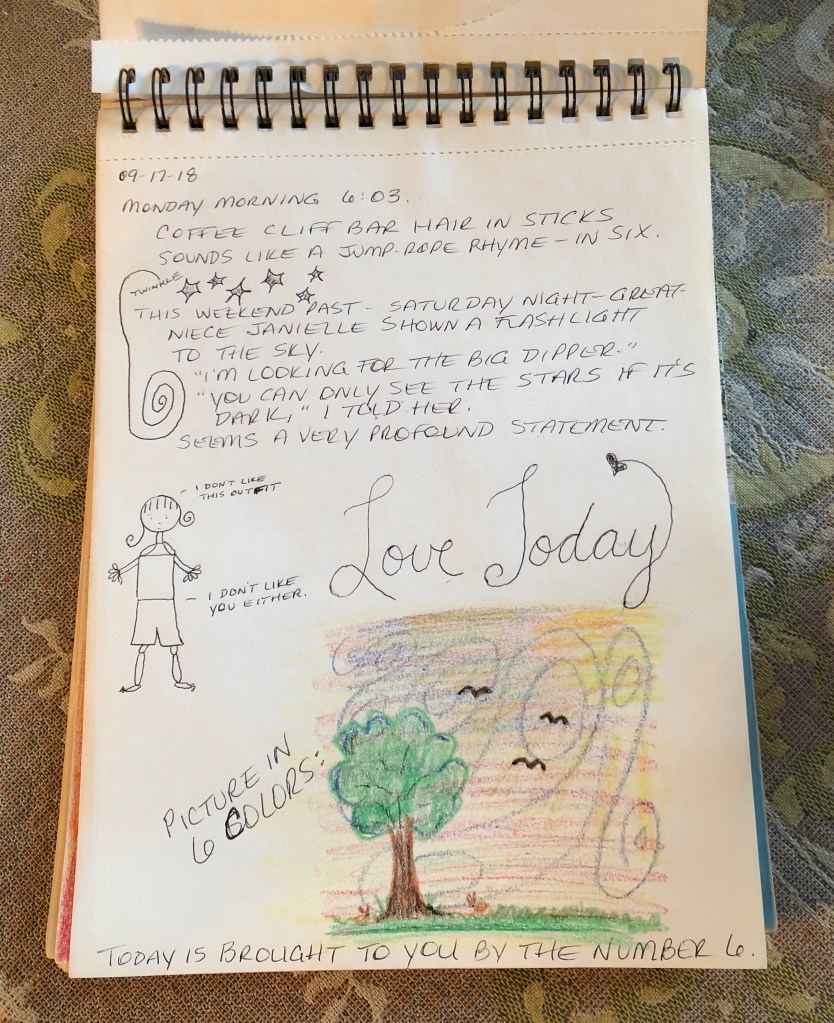 09-17-18
MONDAY MORNING 6:03.
COFFEE CLIFF BAR HAIR IN STICKS
SOUNDS LIKE A JUMP-ROPE RHYME - IN SIX.
TWINKLE
THIS WEEKEND PAST - SATURDAY NIGHT - GREAT-
NIECE JANIELLE SHOWN A FLASHLIGHT
TO THE SKY.
"I'M LOOKING FOR THE BIG DIPPER."
"YOU CAN ONLY SEE THE STARS IF IT'S
DARK," I TOLD HER.
SEEMS A VERY PROFOUND STATEMENT.
- I DON'T LIKE
THIS OUTFIT
Love Today
- I DON'T LIKE
YOU EITHER.
PICTURE IN
6 COLORS:
TODAY IS BROUGHT TO YOU BY THE NUMBER 6.